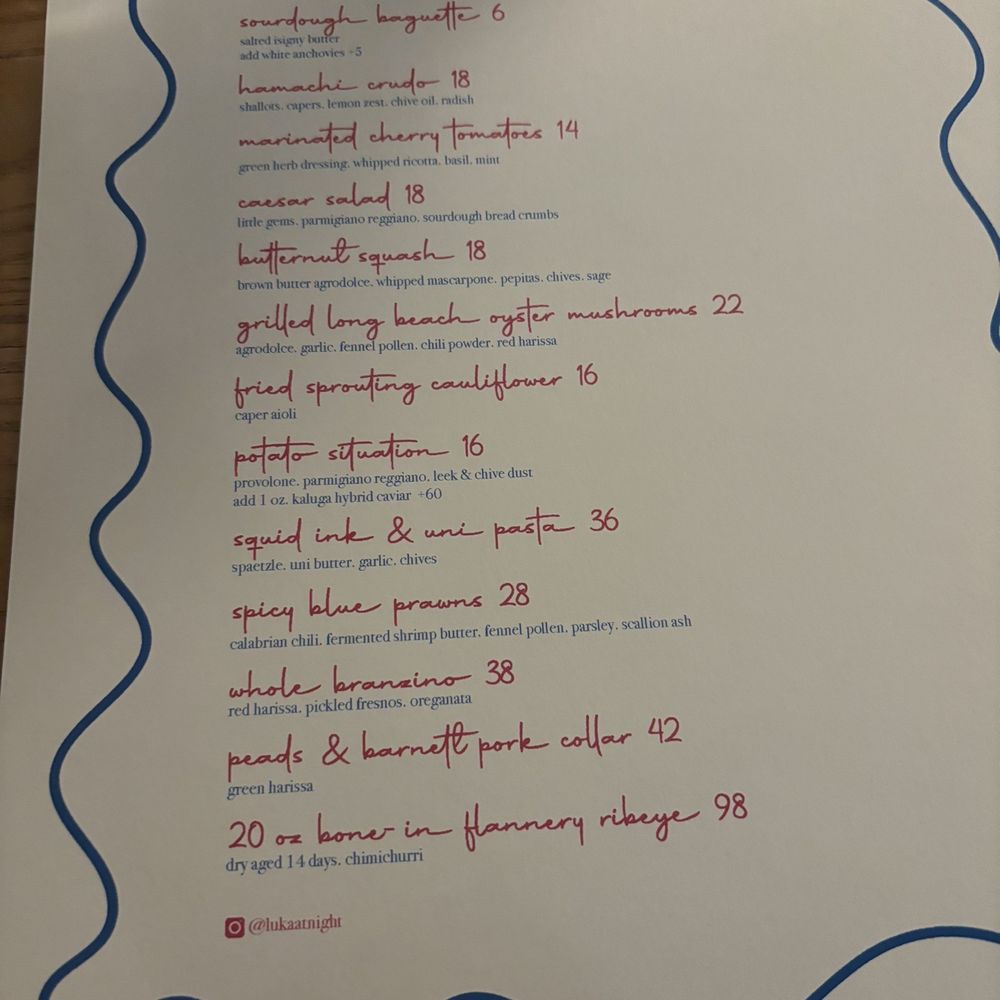 sourdough baguette 6
salted isigny butter
add white anchovies +5
hamachi crudo 18
shallots. capers. lemon zest. chive oil. radish
marinated cherry tomatoes 14
green herb dressing. whipped ricotta. basil. mint
caesar salad 18
little gems. parmigiano reggiano. sourdough bread crumbs
butternut squash 18
brown butter agrodolce. whipped mascarpone. pepitas. chives. sage
grilled long beach oyster mushrooms 22
agrodolce. garlic. fennel pollen. chili powder. red harissa
fried sprouting cauliflower 16
caper aioli
potato situation 16
provolone. parmigiano reggiano. leek & chive dust
add 1 oz. kaluga hybrid caviar +60
squid ink & uni pasta 36
spaetzle. uni butter. garlic. chives
spicy blue prawns 28
calabrian chili. fermented shrimp butter. fennel pollen. parsley. scallion ash
whole branzino 38
red harissa. pickled fresnos. oreganata
peads & barnett pork collar 42
green harissa
20 oz bone-in flannery ribeye 98
dry aged 14 days. chimichurri
@lukaatnight